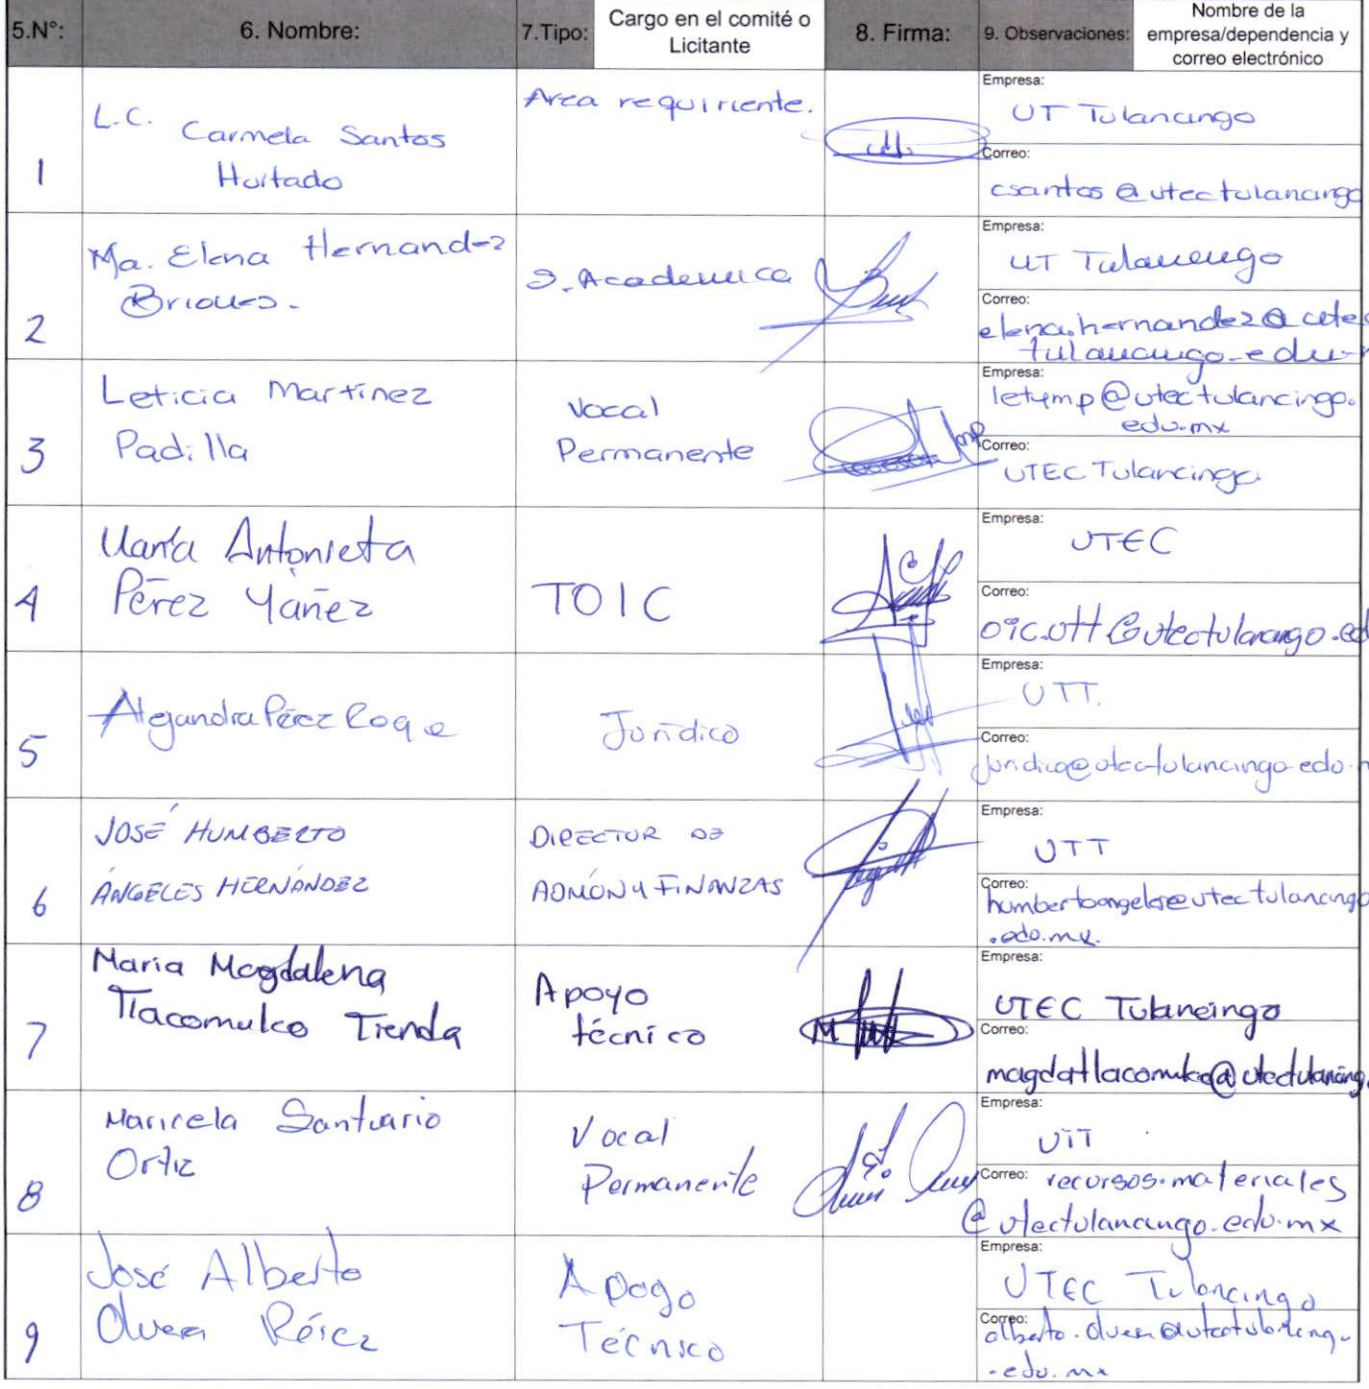 5.N°: 6. Nombre: 7.Tipo: Cargo en el comité o Licitante 8. Firma: 9. Observaciones: Nombre de la empresa/dependencia y correo electrónico
1
L.C. Carmela Santos
Hurtado
Area requiriente.
Empresa:
UT Tulancingo
Correo:
csantos@utectulancingo
2
Ma. Elena Hernandez
Briones.
S. Academica
Empresa:
UT Tulancingo
Correo:
elena.hernandez@utec
tulancingo.edu.
3
Leticia Martínez
Padilla
Vocal
Permanente
Empresa:
letymp@utectulancingo.
edu.mx
Correo:
UTEC Tulancingo.
4
María Antonieta
Pérez Yañez
TOIC
Empresa:
UTEC
Correo:
oic.utt@utectulancingo.ed
5
Alejandra Pérez Roque
Jurídico
Empresa:
UTT.
Correo:
juridico@utectulancingo.edu.
6
JOSÉ HUMBERTO
ÁNGELES HERNÁNDEZ
DIRECTOR DE
ADMÓN Y FINANZAS
Empresa:
UTT
Correo:
humbertoangeles@utectulancingo
.edu.mx.
7
Maria Magdalena
Tlacomulco Tienda
Apoyo
técnico
Empresa:
UTEC Tulancingo
Correo:
magdatlacomulco@utectulancing
8
Maricela Santuario
Ortiz
Vocal
Permanente
Empresa:
UTT
Correo: recursos.materiales
@utectulancingo.edu.mx
9
José Alberto
Olvera Pérez
Apoyo
Técnico
Empresa:
UTEC Tulancingo
Correo:
alberto.olvera@utectulancingo
.edu.mx